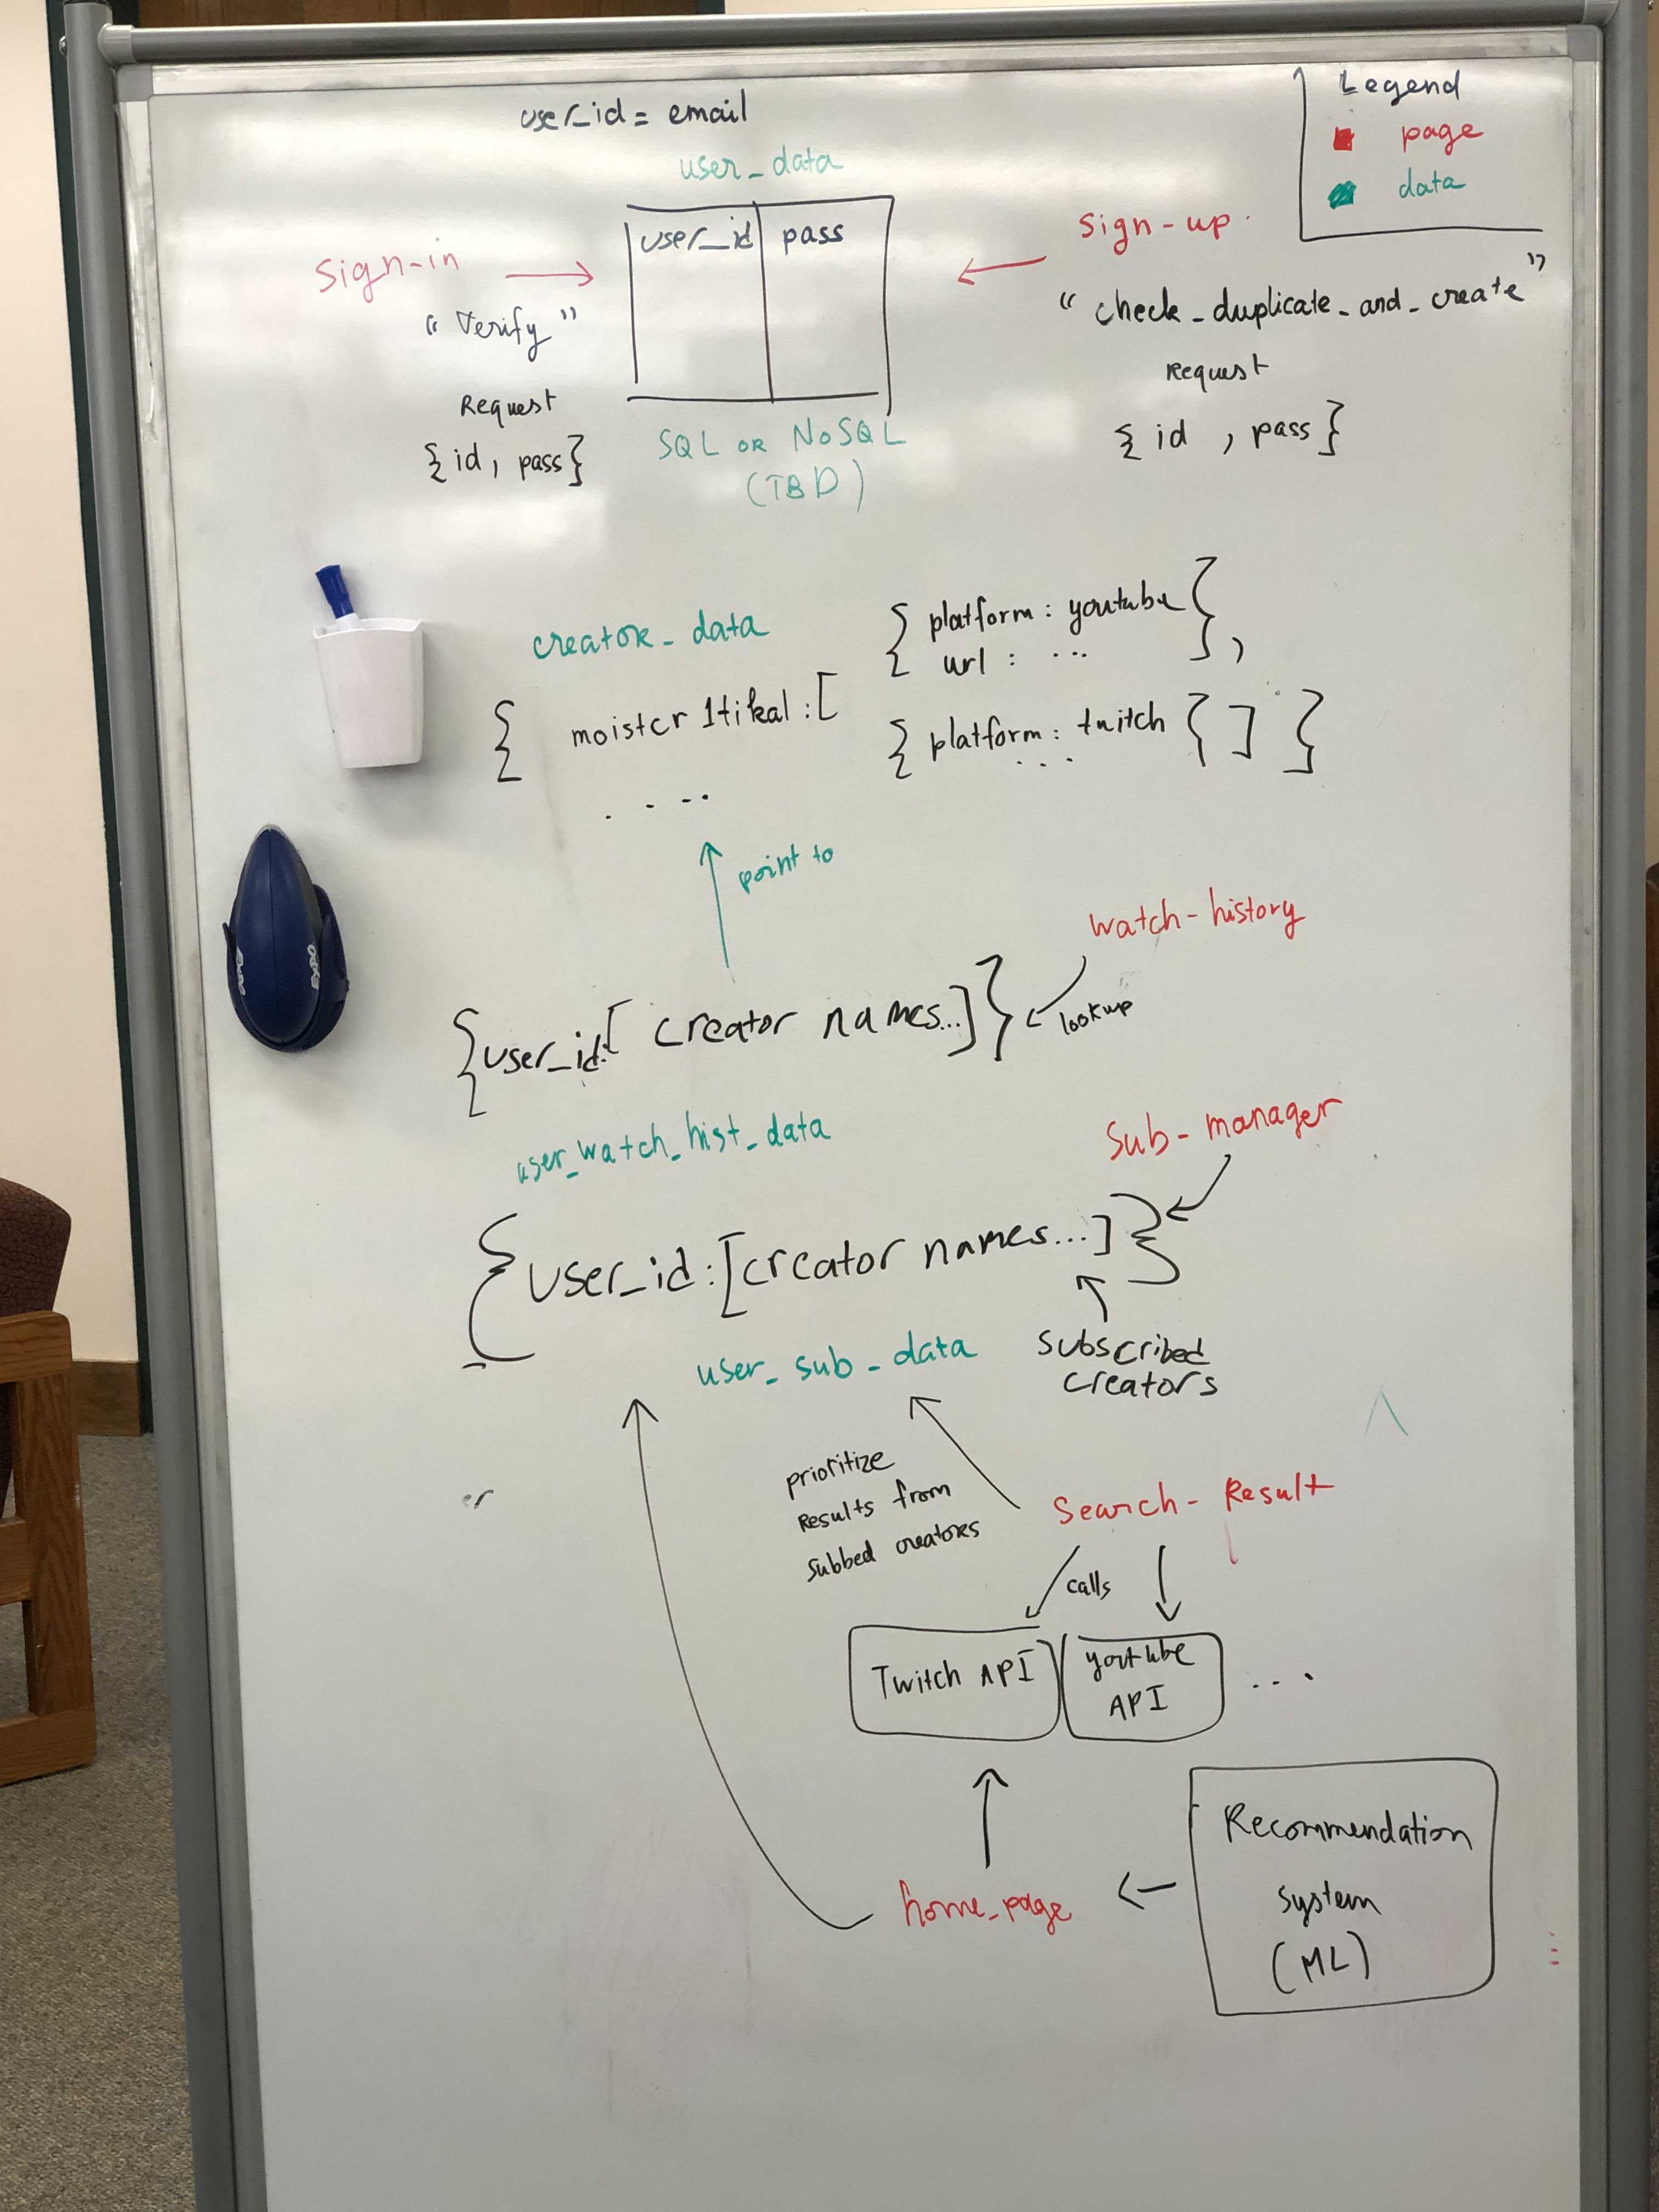 user_id = email
Legend
page
data
user_data
user_id pass
sign-in
"Verify"
Request
{id, pass}
SQL OR NoSQL
(TBD)
sign-up
"check_duplicate_and_create"
Request
{ id , pass}
creator_data
{ platform : youtube
url : ... },
{ moistcr1tikal : [
{ platform : twitch
... { ] }
. . . .
point to
watch-history
lookup
{user_id:[ creator names...]}
user_watch_hist_data
sub-manager
{user_id:[creator names...]}
user_sub_data
subscribed
creators
prioritize
Results from
subbed creators
er
search-Result
calls
Twitch API
youtube
API
...
home_page
Recommendation
system
(ML)
EXPO
EXPO